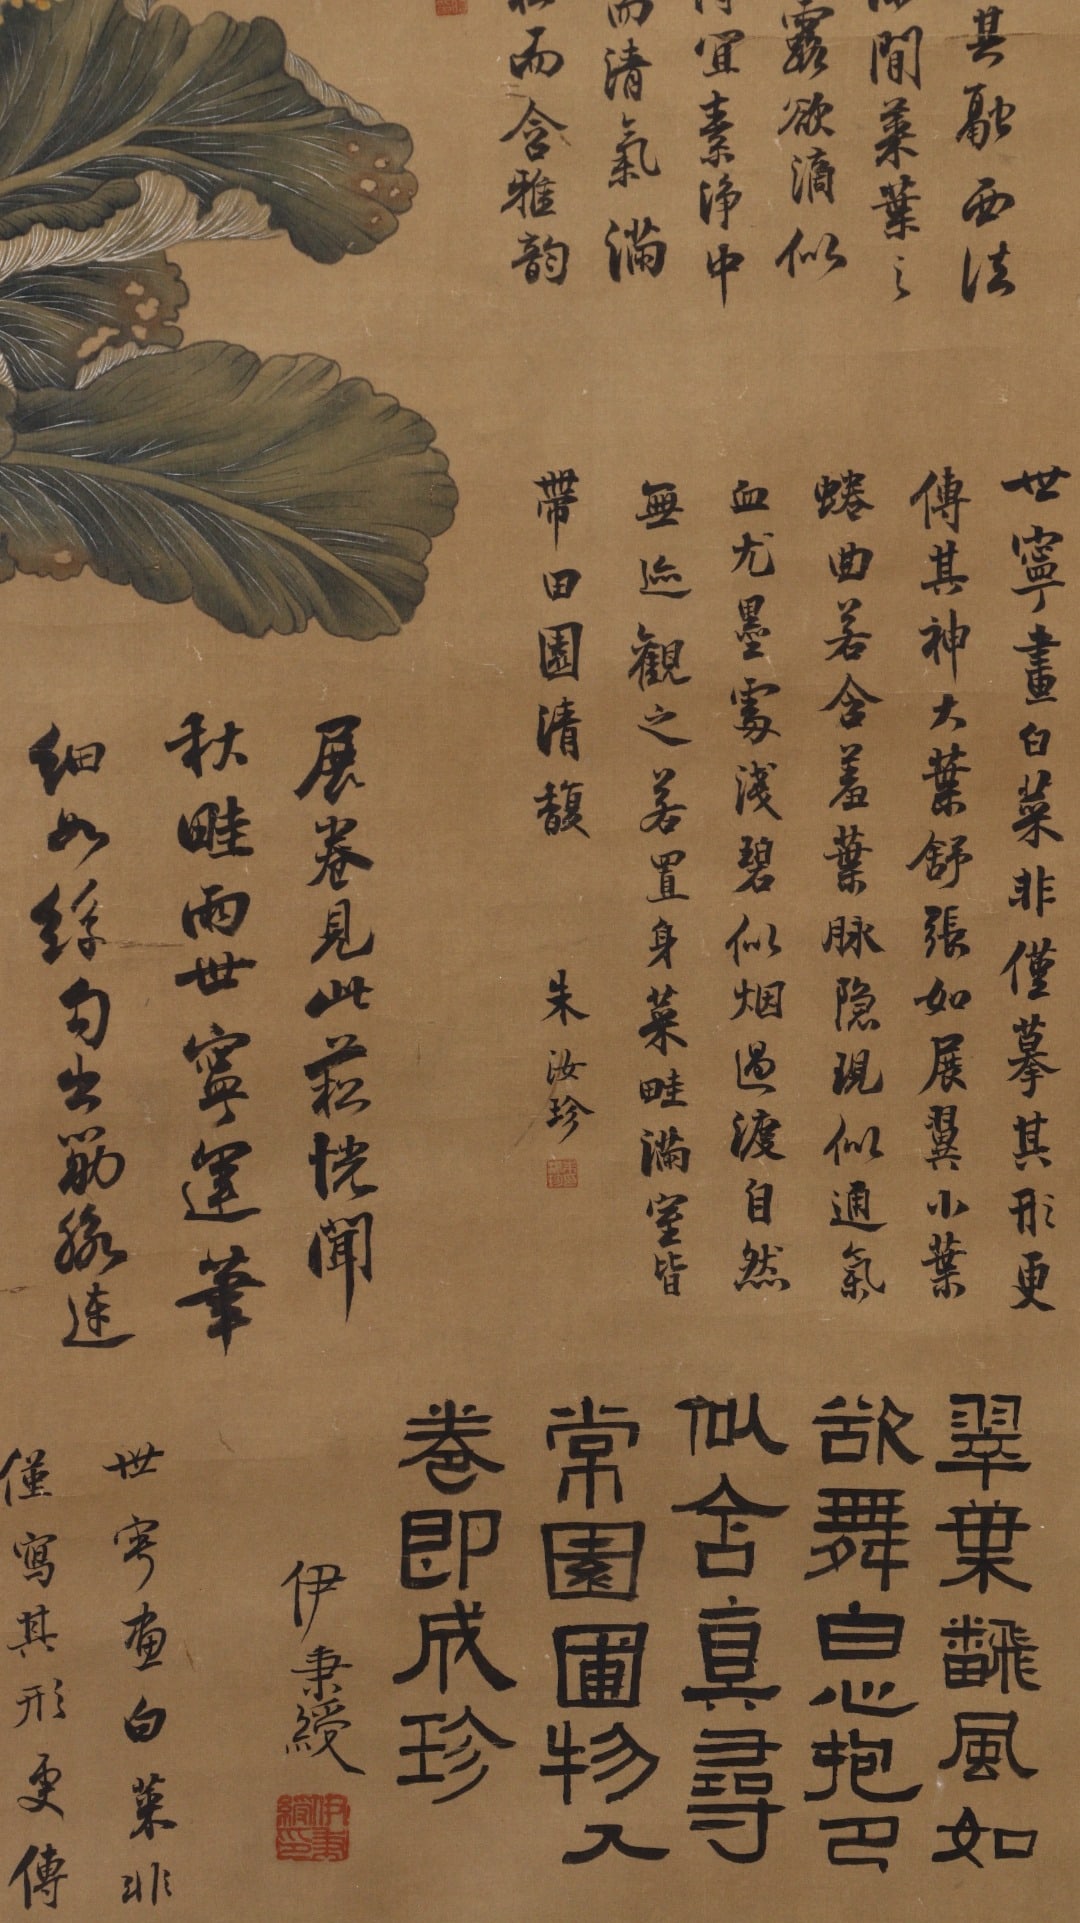 其融西法
間葉葉之
露欲滴似
宜素淨中
而清氣滿
而含雅韵
世寧畫白菜非僅摹其形更
傳其神大葉舒張如展翼小葉
蜷曲若含羞葉脉隐現似通氣
血尤墨處淺碧似烟過渡自然
無迹觀之若置身菜畦滿室皆
帶田園清馥
朱汝珍
展卷見此菘恍聞
秋畦雨世寧運筆
細如絲勾出筋脉連
翠葉飜風如
欲舞白心抱
似含真尋
常園圃物入
卷即成珍
伊秉綬
伊秉綬印
世寧畫白菜非
僅寫其形更傳